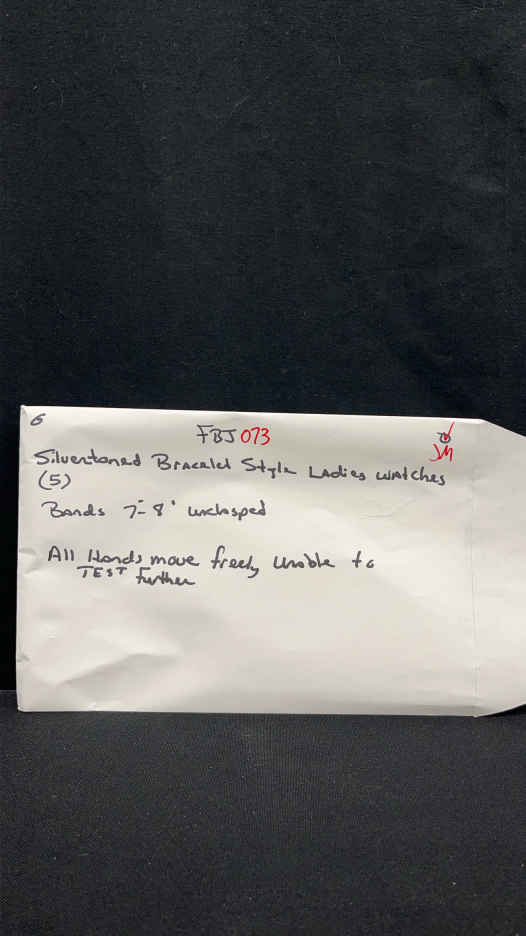 6
FBJ073
JM
Silvertoned Bracelet Style Ladies Watches
(5)
Bands 7-8" unclasped
All Hands move freely unable to
TEST further